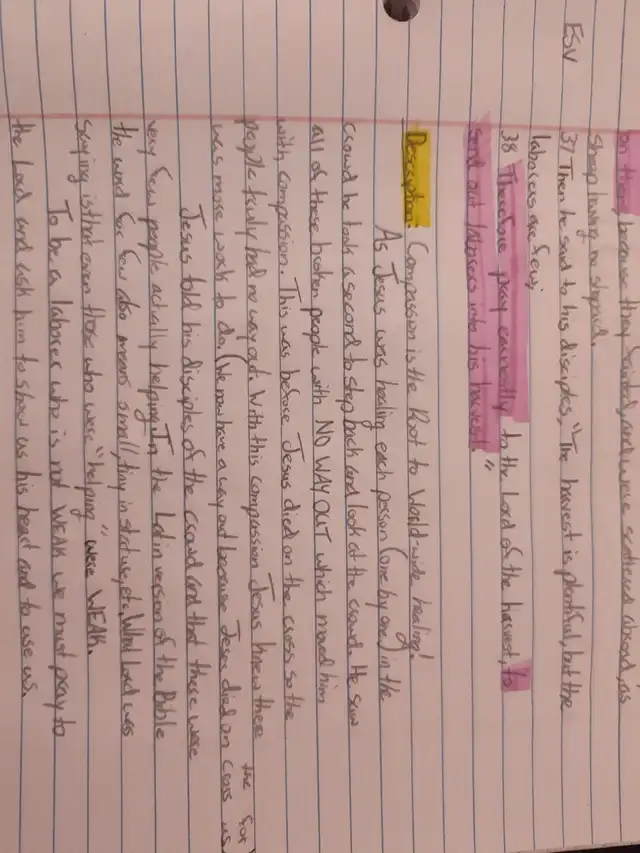 on them, because they fainted, and were scattered abroad, as
Sheep having no shepherd.
ESV 37 Then he said to his disciples, "The harvest is plentiful, but the
laborers are few;
38 Therefore pray earnestly to the Lord of the harvest, to
send out laborers into his harvest."
Description: Compassion is the Root to World-wide healing!
As Jesus was healing each person (one by one) in the
crowd he took a second to step back and look at the crowd. He saw
all of these broken people with NO WAY OUT which moved him
with compassion. This was before Jesus died on the cross so the
people truly had no way out. With this compassion Jesus knew there
was more work to do. (We now have a way out because Jesus died on the cross for us)
Jesus told his disciples of the crowd and that there were
very few people actually helping. In the Latin version of the Bible
the word for few also means small, tiny in stature, etc. What Lord was
saying is that even those who were "helping" were WEAK.
To be a laborer who is not WEAK we must pray to
the Lord and ask him to show us his heart and to use us.